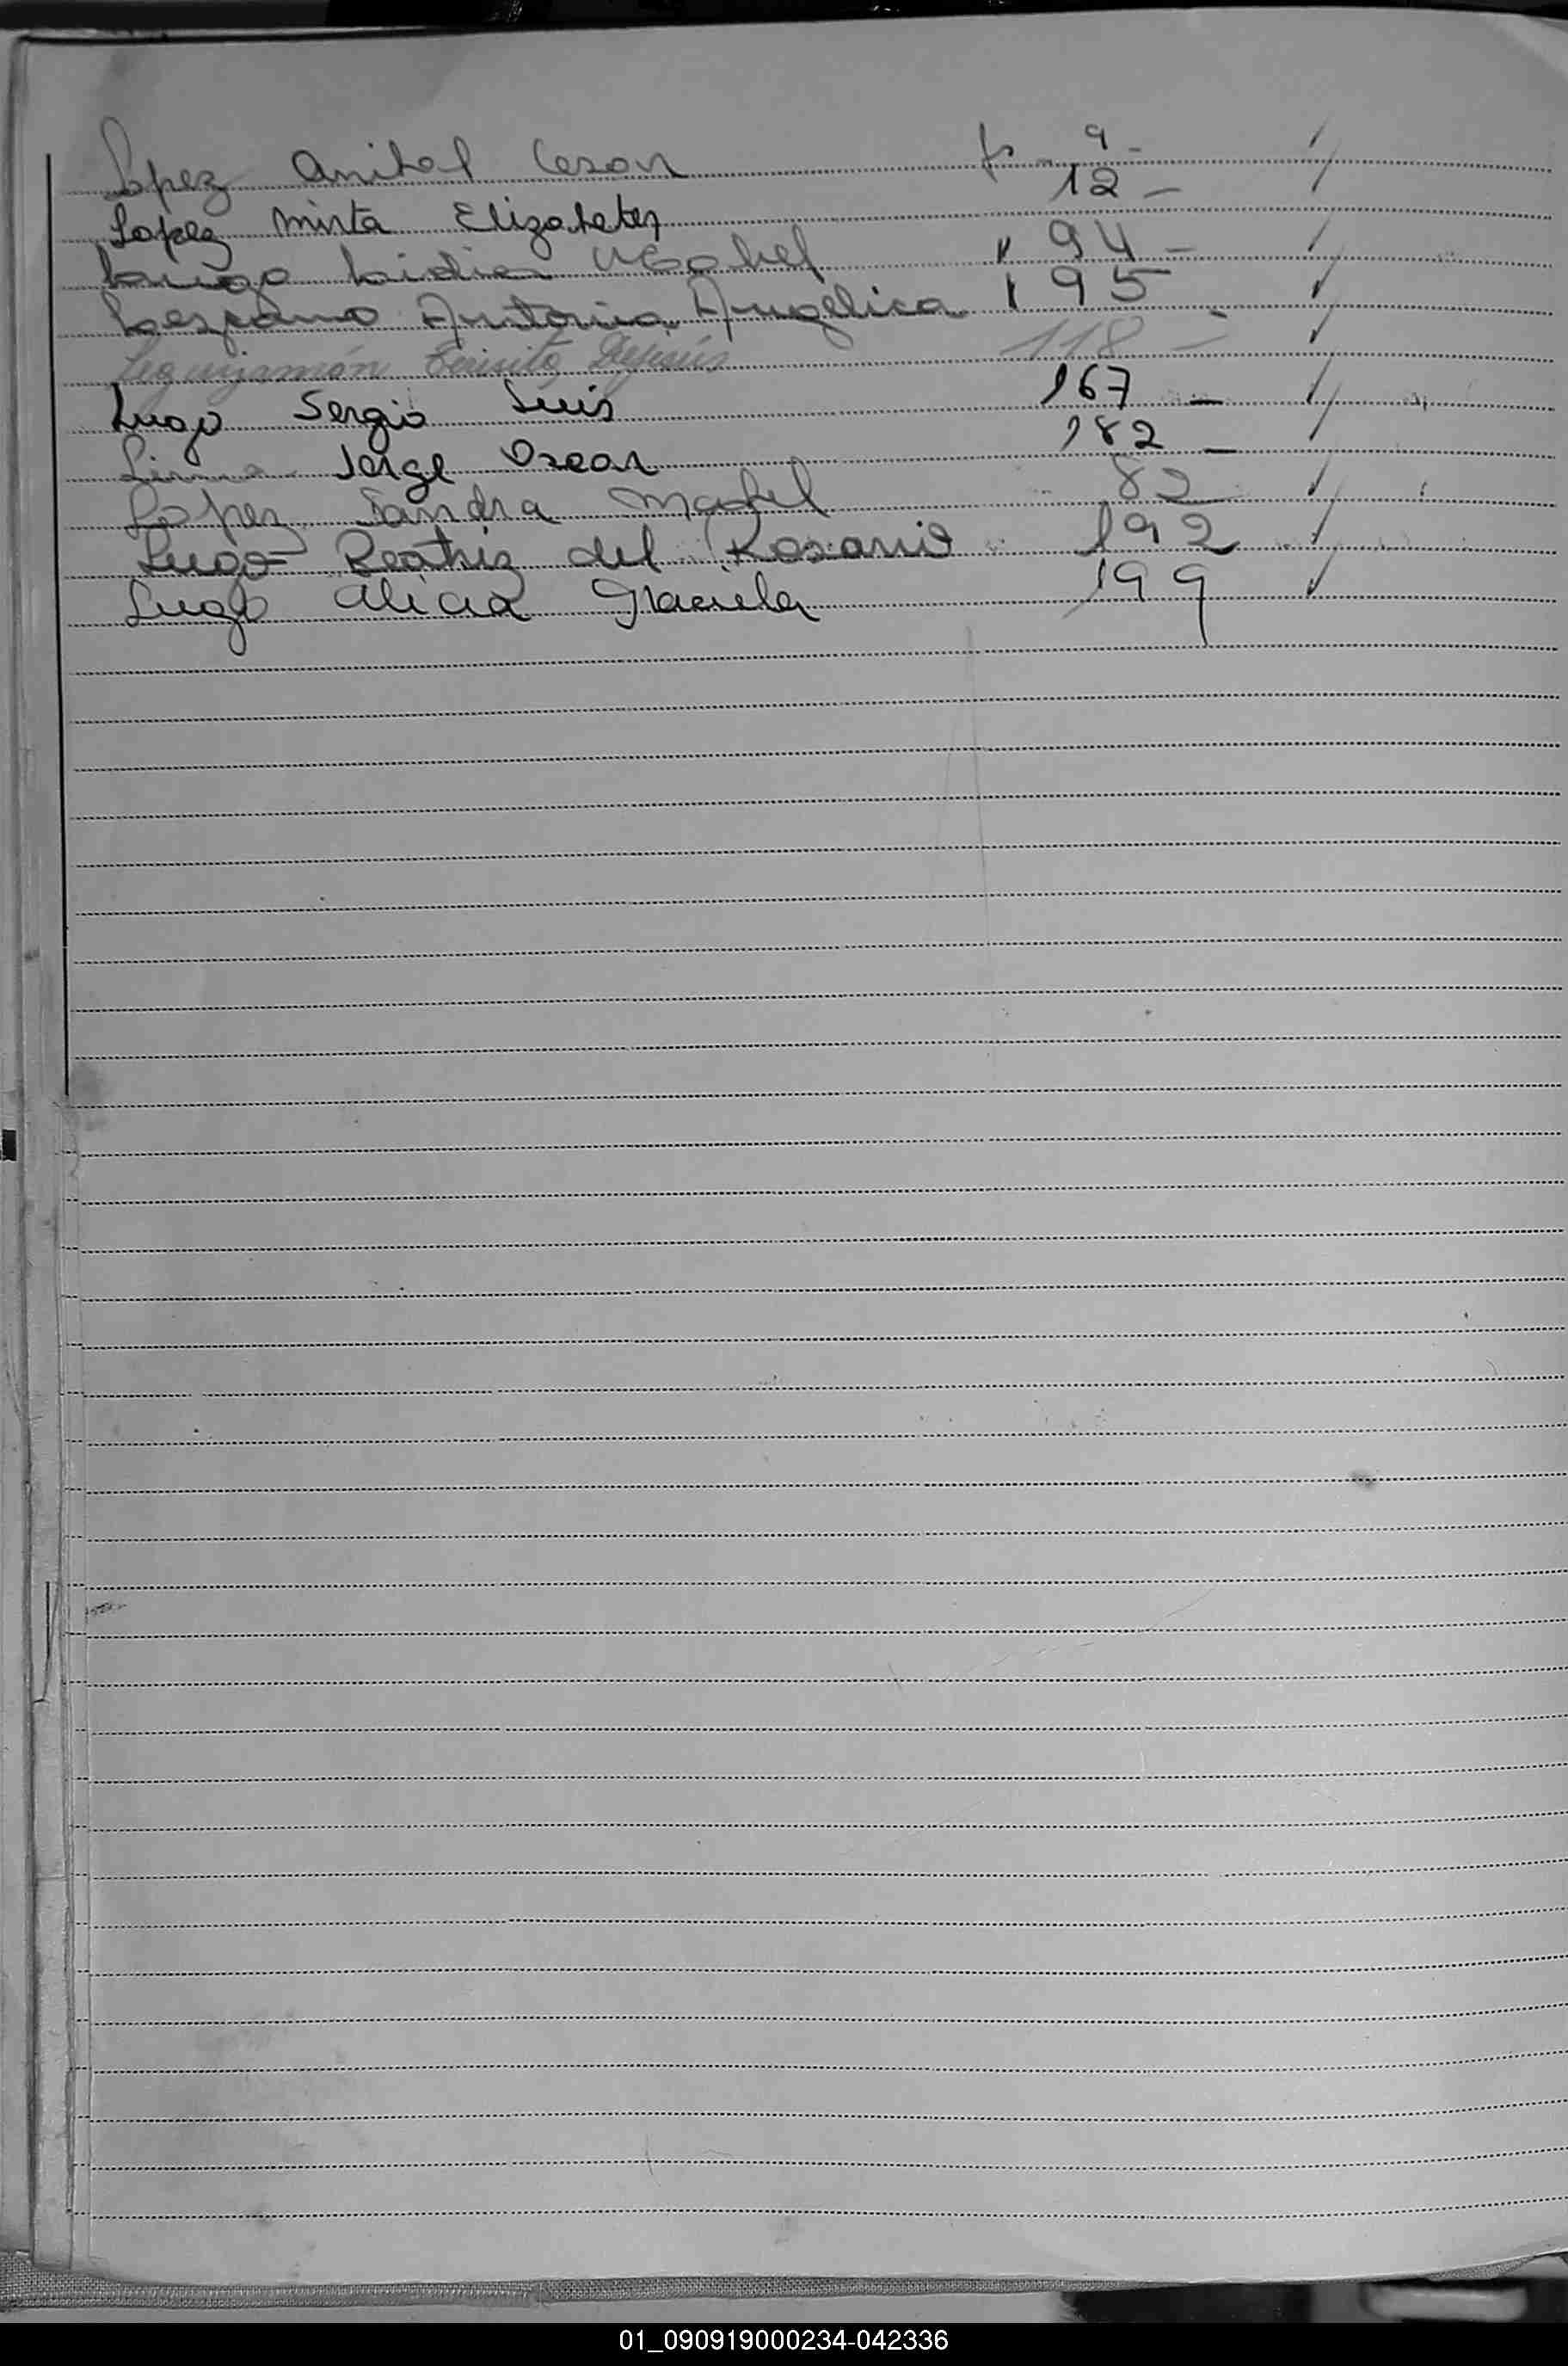 Lopez Anibal Cesar fs 9 -
Lopez Mirta Elizabeter 12 -
Lugo Lidia Mabel " 94 -
Lezcano Antonia Angélica " 95 -
Leguizamón Jesús 118 -
Lugo Sergio Luis 167 -
Jorge Oscar 182 -
Lopez Sandra Mabel 82
Lugo Beatriz del Rosario 192
Lugo Alicia Graciela 199
01_090919000234-042336